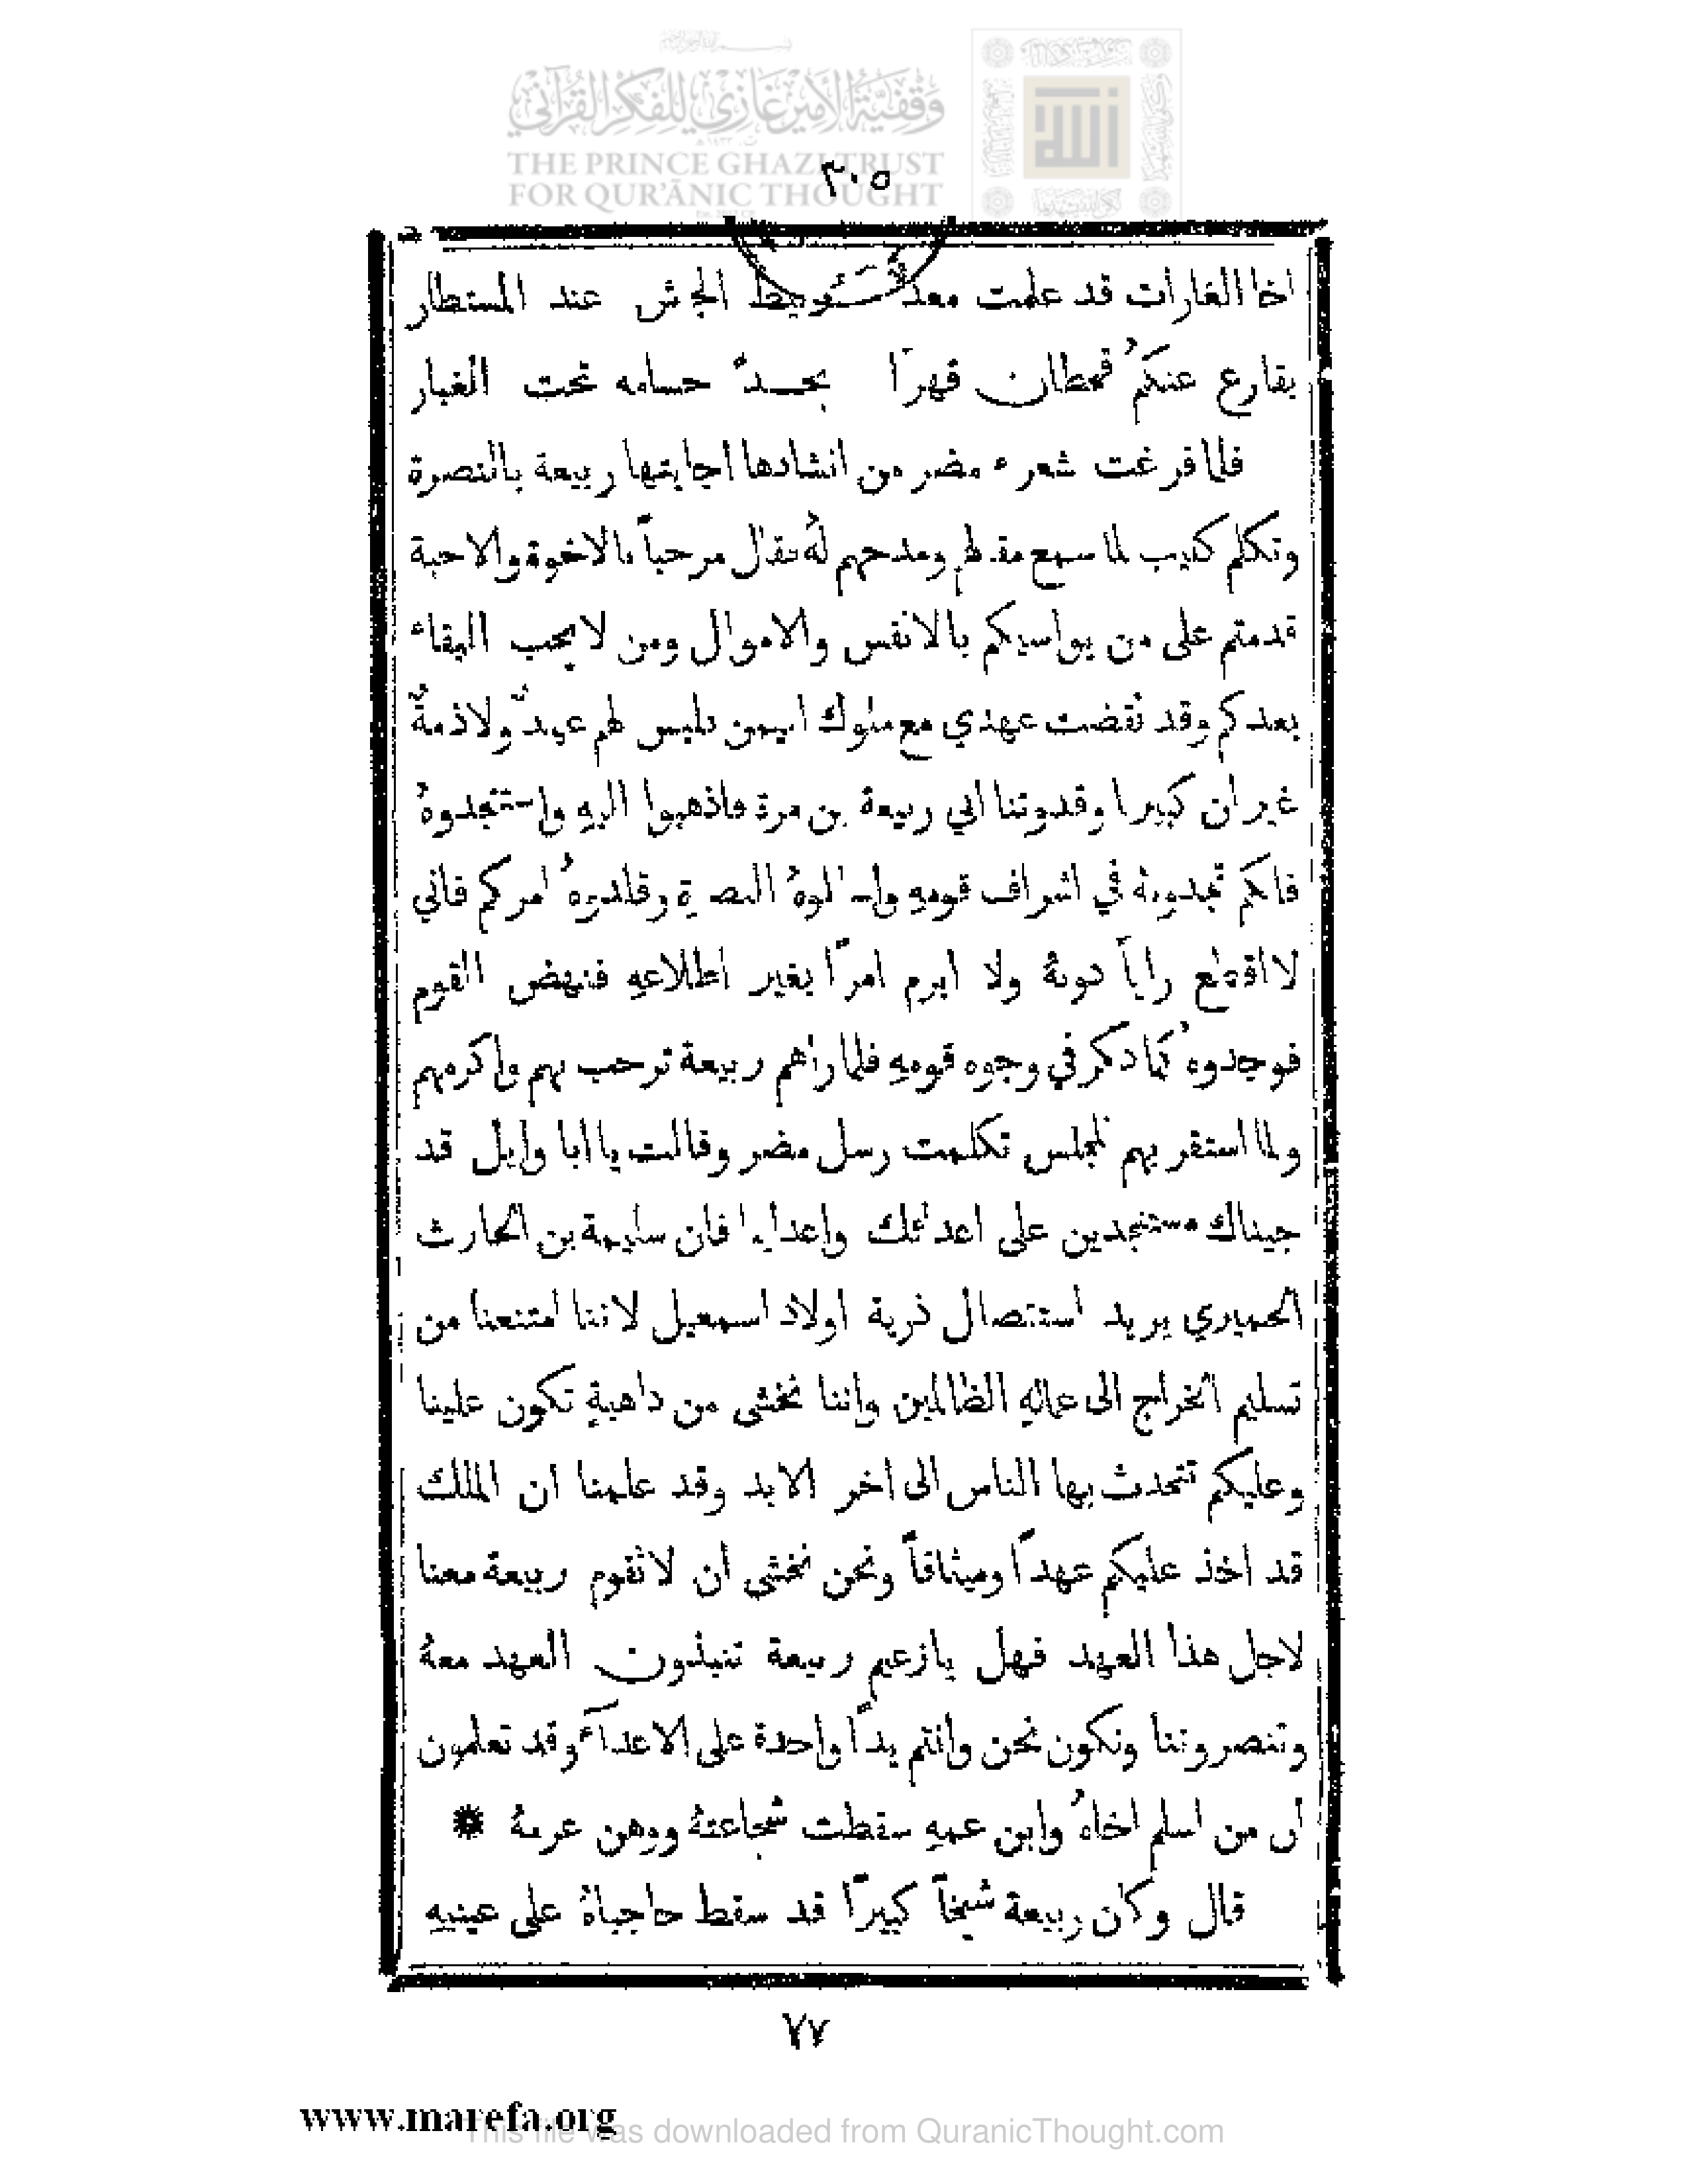 وقفية الأمير غازي للفكر القرآني
THE PRINCE GHAZI TRUST
FOR QUR'ĀNIC THOUGHT
٣٠٥
اخا الغارات قد علمت معد وسيط الجأش عند المستطار
يقارع عنكمُ قحطان قهرًا بحــدّ حسامه تحت الغبار
فلما فرغت شعراء مضر من انشادها اجابتها ربيعة بالنصرة
وتكلم كليب لما سمع مقالهم ومدحهم لهُ فقال مرحباً بالاخوة والاحبة
قدمتم على من يواسيكم بالانفس والاموال ومن لا يحب البقاء
بعدكم وقد نقضت عهدي مع ملوك اليمن فليس لهم عهدٌ ولا ذمةٌ
غير ان كبيرنا وقدوتنا ابي ربيعة بن مرة فاذهبوا اليهِ واستنجدوهُ
فانكم تجدونهُ في اشراف قومهِ واسالوهُ النصرة وقلدوهُ امركم فاني
لا اقطع راياً دونهُ ولا ابرم امرًا بغير اطلاعهِ فنهض القوم
فوجدوهُ كما ذكر في وجوه قومهِ فلما راهم ربيعة ترحب بهم واكرمهم
ولما استقر بهم المجلس تكلمت رسل مضر وقالت يا ابا وايل قد
جيناك مستنجدين على اعدائك واعداينا فان سليمة بن الحارث
الحميري يريد استئصال ذرية اولاد اسمعيل لاننا امتنعنا من
تسليم الخراج الى عمالهِ الظالمين واننا نخشى من داهيةٍ تكون علينا
وعليكم تتحدث بها الناس الى اخر الابد وقد علمنا ان الملك
قد اخذ عليكم عهدًا وميثاقاً ونحن نخشى ان لا تقوم ربيعة معنا
لاجل هذا العهد فهل يا زعيم ربيعة تنبذون العهد معهُ
وتنصروننا ونكون نحن وانتم يدًا واحدة على الاعداء وقد تعلمون
ان من اسلم اخاهُ وابن عمهِ سقطت شجاعتهُ ووهن عزمهُ ❋
قال وكان ربيعة شيخاً كبيرًا قد سقط حاجباهُ على عينيهِ
٧٧
www.marefa.org
This file was downloaded from QuranicThought.com